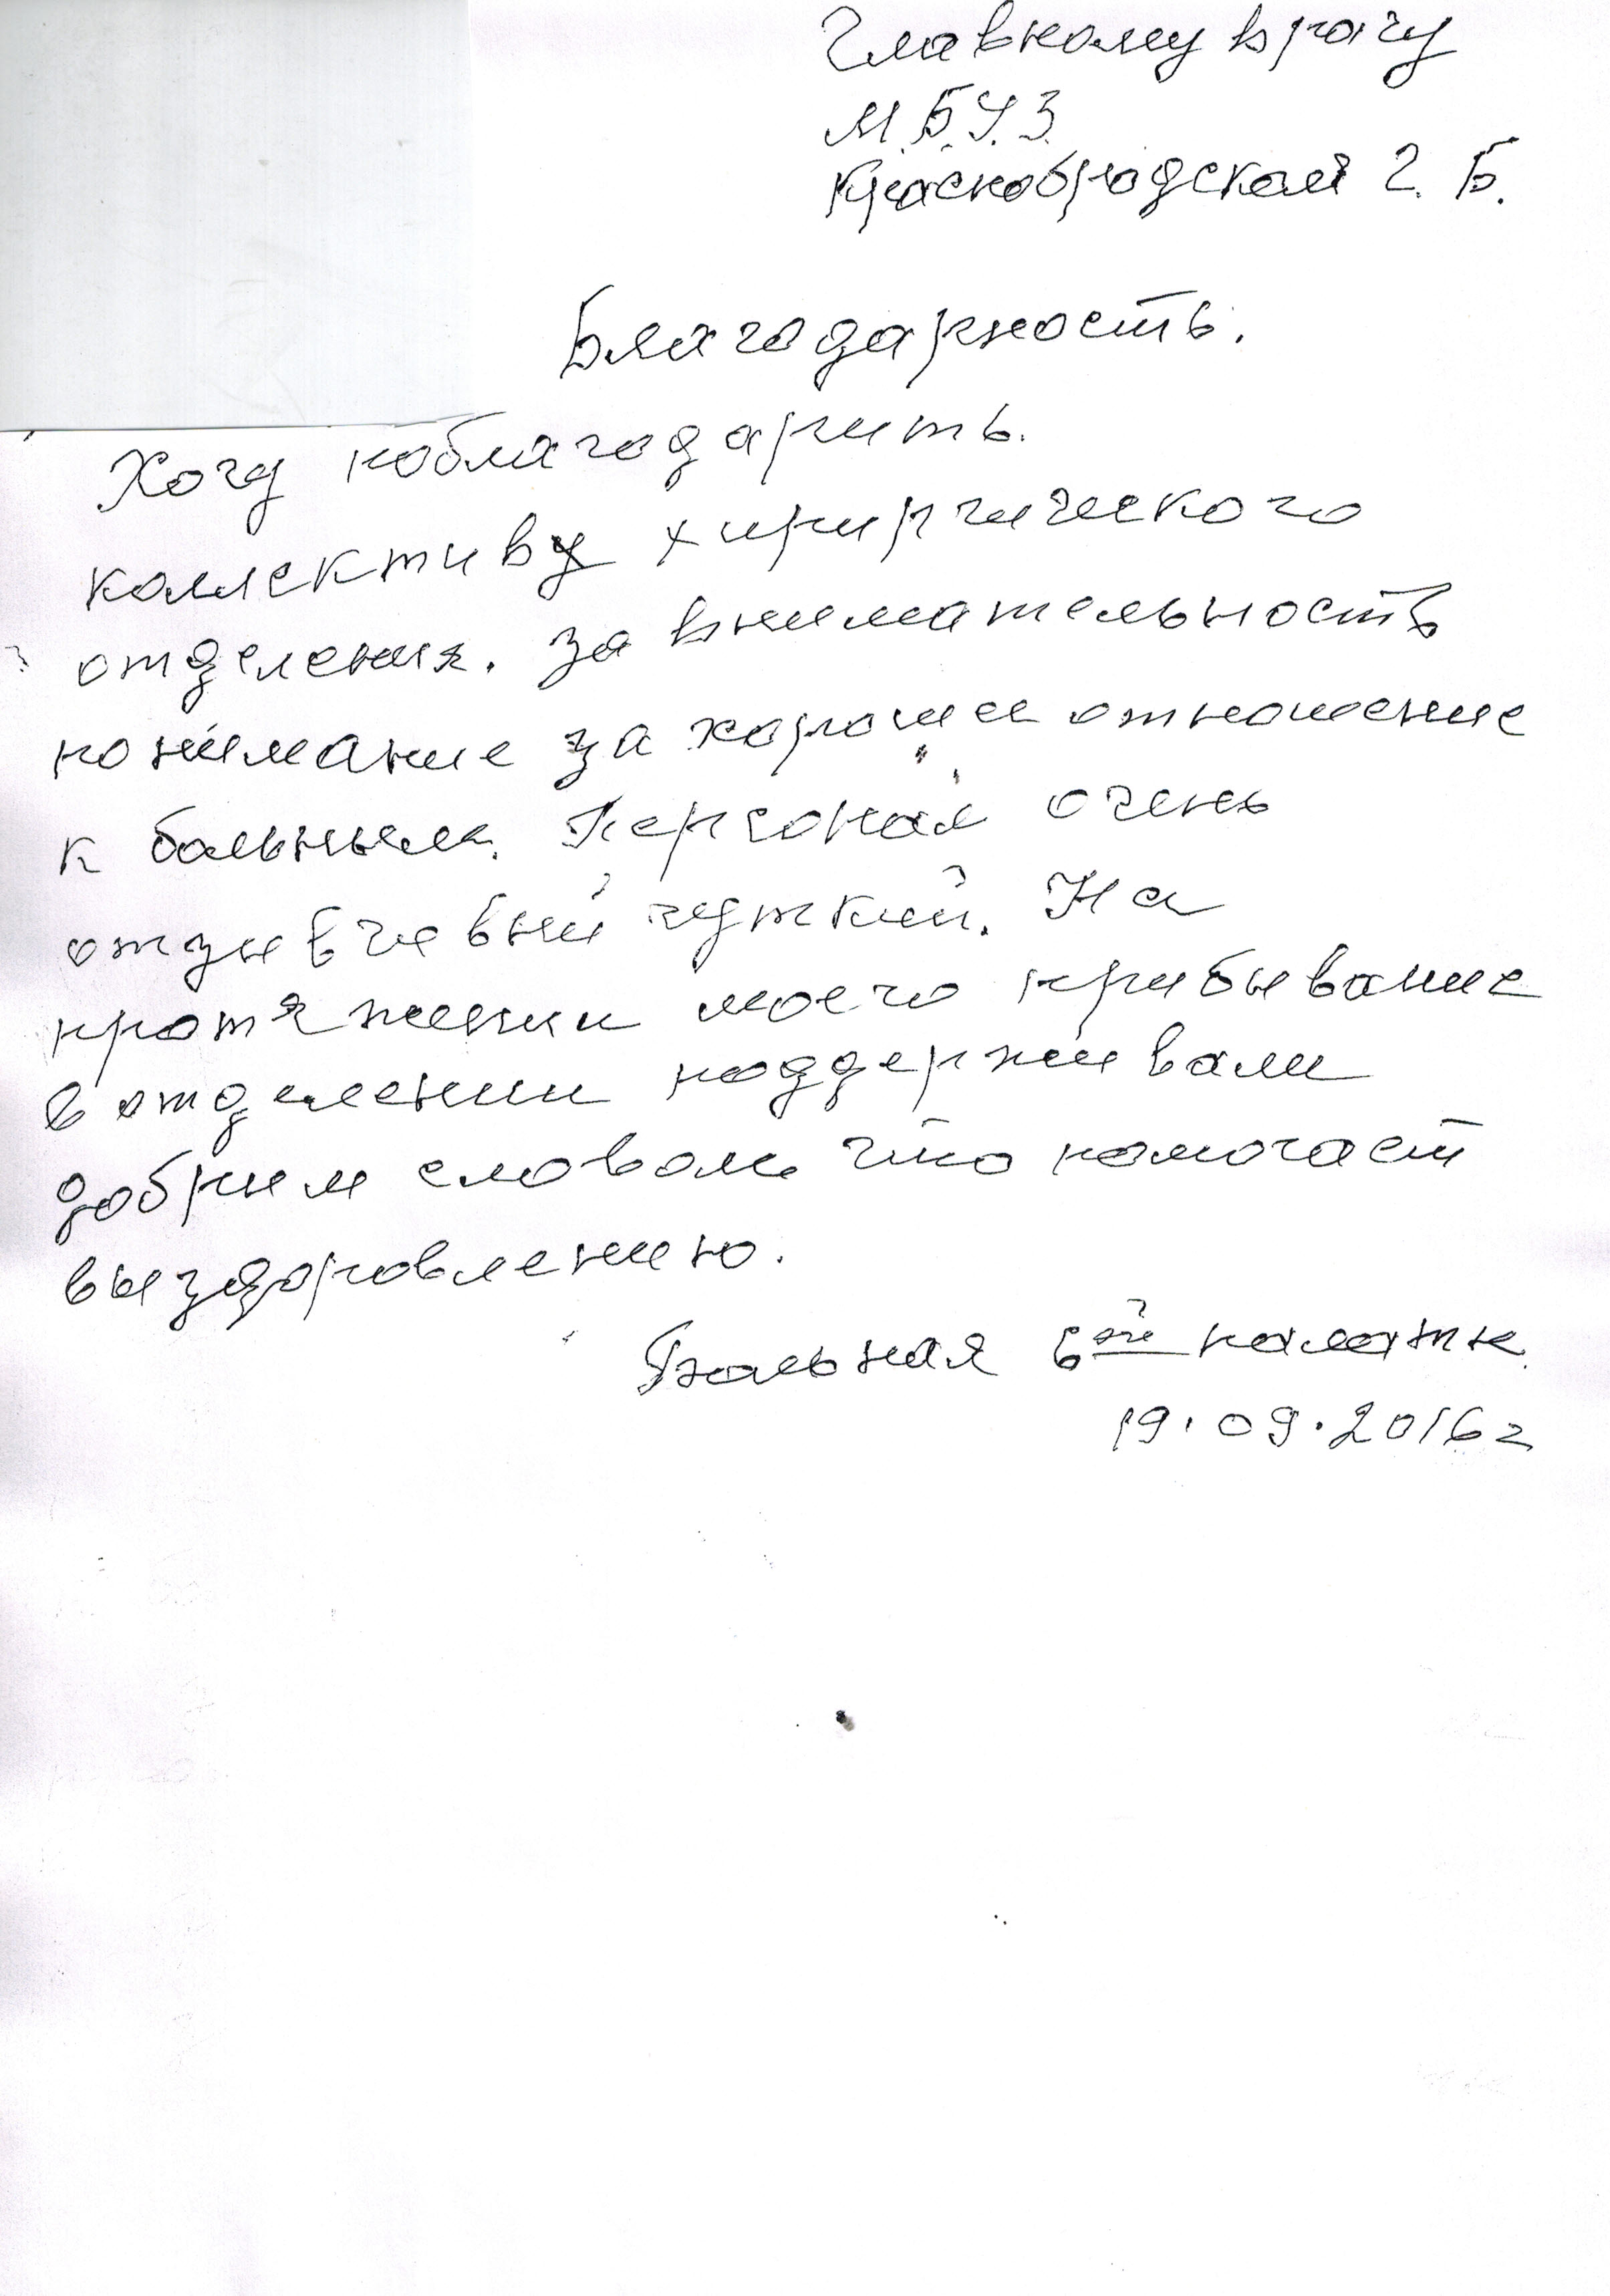 Главному врачу
М.Б.У.З.
Краснобродской г. Б.
Благодарность.
Хочу поблагодарить.
коллективу хирургического
отделения. за внимательность
понимание за хорошее отношение
к больным. Персонал очень
отзывчевый чуткий. На
протяжении моего прибывание
в отделении поддерживали
добрым словом что помогает
выздоровлению.
Больная 6ой палаты.
19.09.2016г